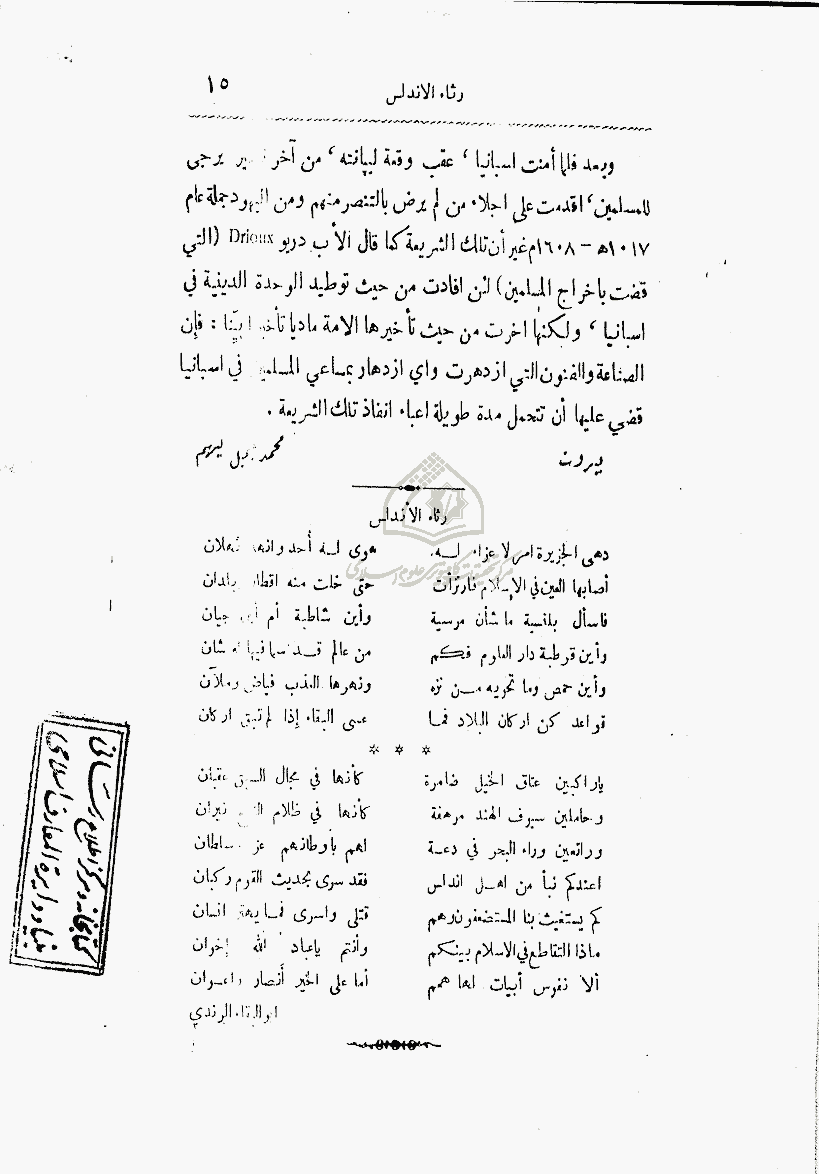 رثاء الاندلس ١٥
وبعد فلما أمنت اسبانيا ، عقب وقعة ليبانته ، من آخر يرجى
للمسلمين ، اقدمت على اجلاء من لم يرض بالتنصر منهم ومن اليهود جملة عام
١٠١٧هـ – ١٦٠٨م غير أن تلك الشريعة كما قال الأب دريو Drioux (التي
قضت باخراج المسلمين) لئن افادت من حيث توطيد الوحدة الدينية في
اسبانيا ، ولكنها اخرت من حيث تأخيرها الامة ماديا تأخيرا بيّنا : فإن
الصناعة والفنون التي ازدهرت واي ازدهار بمساعي المسلمين في اسبانيا
قضي عليها أن تتحمل مدة طويلة اعباء انفاذ تلك الشريعة .
بيروت محمد جميل بيهم
رثاء الأندلس
دهى الجزيرة امر لا عزاء لـه هوى لـه أحد وانهد ثهلان
أصابها العين في الإسلام فارتزأت حتى خلت منه اقطار وبلدان
فاسأل بلنسية ما شأن مرسية وأين شاطبة أم أين جيان
وأين قرطبة دار العلوم فكم من عالم قـد سما فيها له شان
وأين حمص وما تحويه مـن نزه ونهرها العذب فياض وملآن
قواعد كن اركان البلاد فما عسى البقاء إذا لم تبق اركان
* * *
يا راكبين عتاق الخيل ضامرة كأنها في مجال السبق عقبان
وحاملين سيوف الهند مرهفة كأنها في ظلام النقع نيران
وراتعين وراء البحر في دعـة لهم بأوطانهم عز وسلطان
اعندكم نبأ من اهـل اندلس فقد سرى بحديث القوم ركبان
كم يستغيث بنا المستضعفون وهم قتلى واسرى فمـا يهتز انسان
ماذا التقاطع في الاسلام بينكم وأنتم يا عباد الله إخوان
ألا نفوس أبيات لها همم أما على الخير أنصار واعـوان
ابو البقاء الرندي
مركز تحقيقات كامپيوترى علوم اسلامى
كتابخانه و مركز اطلاع رسانى
بنياد دايرة المعارف اسلامى